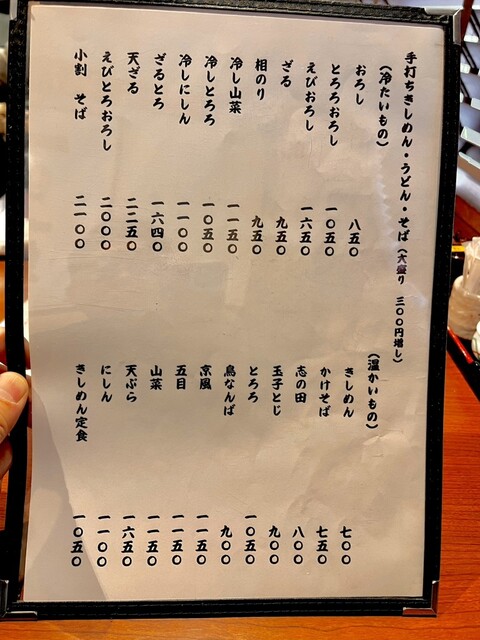 手打ちきしめん・うどん・そば (大盛り 三〇〇円増し)
(冷たいもの)
おろし 八五〇
とろろおろし 一〇五〇
えびおろし 一六五〇
ざる 九五〇
相のり 九五〇
冷し山菜 一一五〇
冷しとろろ 一〇五〇
冷しにしん 一一〇〇
ざるとろ 一六四〇
天ざる 二二五〇
えびとろおろし 二〇〇〇
小割 そば 二一〇〇
(温かいもの)
きしめん 七〇〇
かけそば 七五〇
志の田 八〇〇
玉子とじ 九〇〇
とろろ 一〇五〇
鳥なんば 九〇〇
京風 一一五〇
五目 一一五〇
山菜 一一五〇
天ぷら 一六五〇
にしん 一一〇〇
きしめん定食 一〇五〇